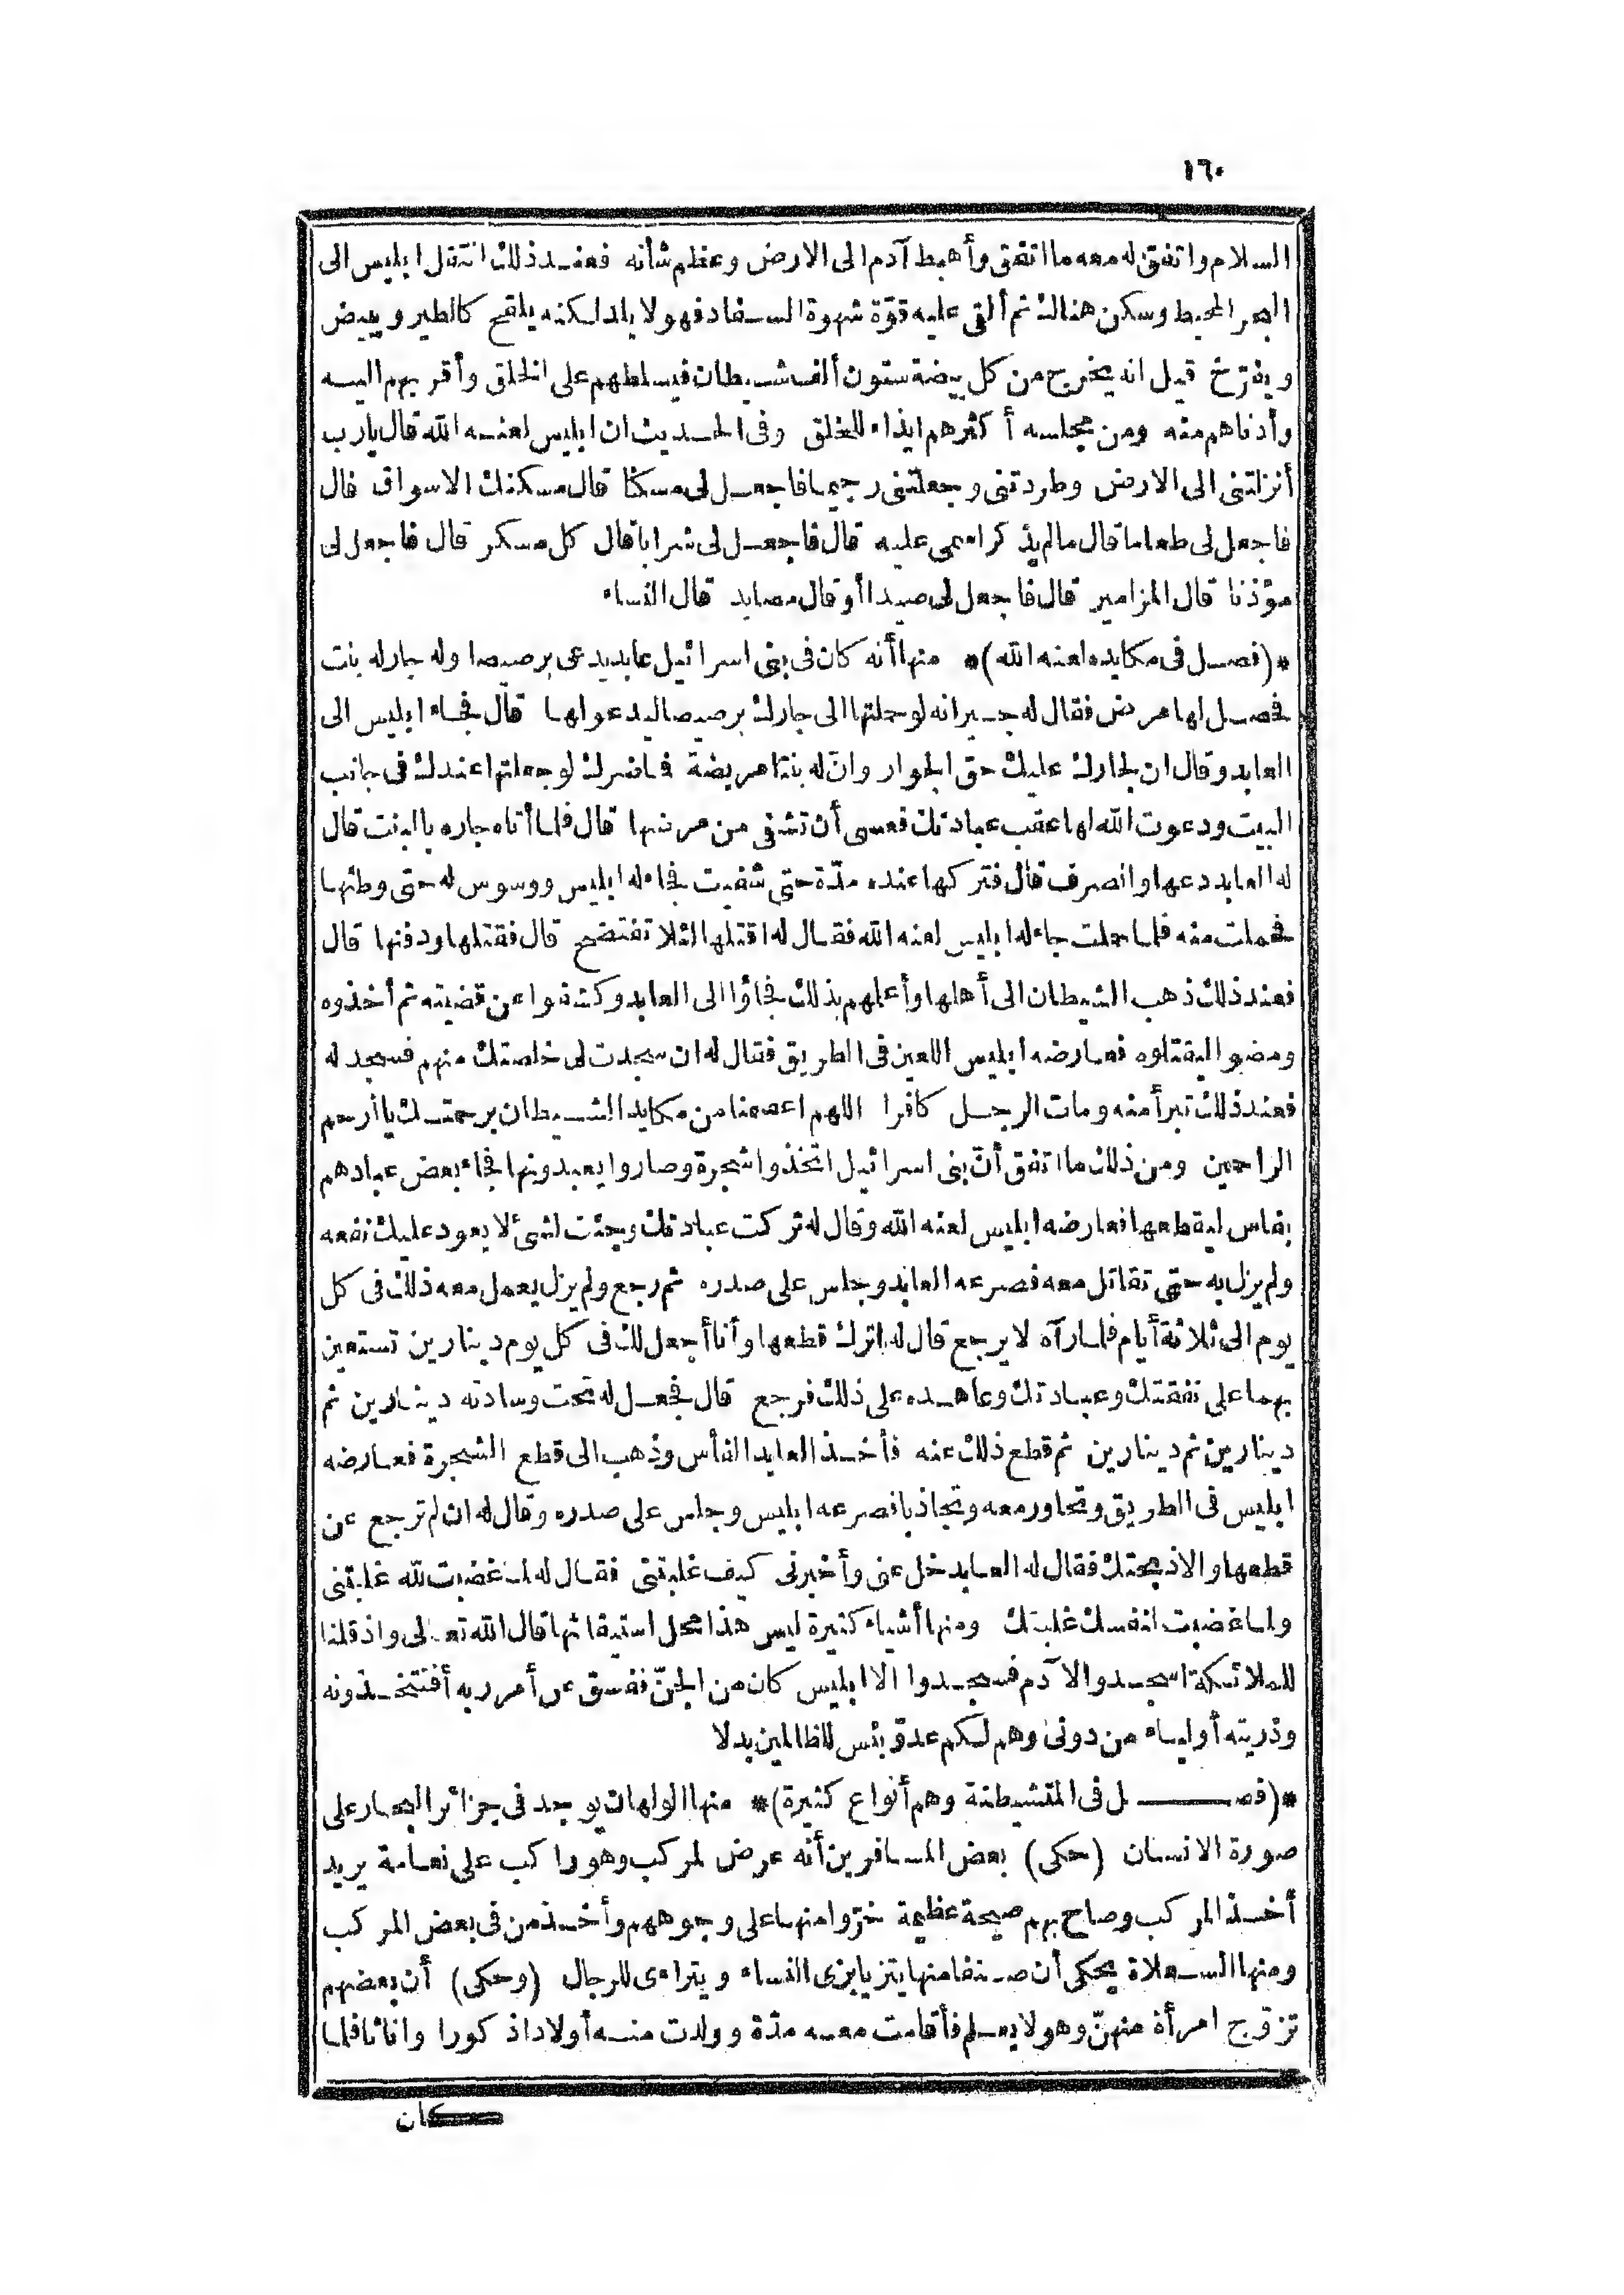 ١٦٠
السلام واتفق له معه ما اتفق وأهبط آدم الى الارض وعظم شأنه فعند ذلك انتقل ابليس الى
البحر المحيط وسكن هنالك ثم ألقى عليه قوّة شهوة السفاد فهو لا يلد لكنه يلقح كالطير ويبيض
ويفرّخ قيل انه يخرج من كل بيضة ستون ألف شيطان فيسلطهم على الخلق وأقربهم اليه
وأدناهم منه ومن مجلسه أكثرهم ايذاء للخلق وفى الحديث ان ابليس لعنه الله قال يارب
أنزلتنى الى الارض وطردتنى وجعلتنى رجيما فاجعل لى مسكنا قال مسكنك الاسواق قال
فاجعل لى طعاما قال ما لم يذكر اسمى عليه قال فاجعل لى شرابا قال كل مسكر قال فاجعل لى
مؤذنا قال المزامير قال فاجعل لى صيدا أو قال مصايد قال النساء
*(فصل فى مكايده لعنه الله)* منها أنه كان فى بنى اسرائيل عابد يدعى برصيصا وله جار له بنت
فحصل لها مرض فقال له جيرانه لو حملتها الى جارك برصيصا ليدعو لها قال فجاء ابليس الى
العابد وقال ان لجارك عليك حق الجوار وان له بنتا مريضة فما ضرك لو جعلتها عندك فى جانب
البيت ودعوت الله لها عقب عبادتك فعسى أن تشفى من مرضها قال فلما أتاه جاره بالبنت قال
له العابد دعها وانصرف قال فتركها عنده مدّة حتى شفيت فجاء له ابليس ووسوس له حتى وطئها
فحملت منه فلما حملت جاء له ابليس لعنه الله فقال له اقتلها لئلا تفتضح قال فقتلها ودفنها قال
فعند ذلك ذهب الشيطان الى أهلها وأعلمهم بذلك فجاؤا الى العابد وكشفوا عن قضيته ثم أخذوه
ومضوا ليقتلوه فعارضه ابليس اللعين فى الطريق فقال له ان سجدت لى خلصتك منهم فسجد له
فعند ذلك تبرأ منه ومات الرجل كافرا اللهم اعصمنا من مكايد الشيطان برحمتك يا أرحم
الراحمين ومن ذلك ما اتفق أنّ بنى اسرائيل اتخذوا شجرة وصاروا يعبدونها فجاء بعض عبادهم
بفاس ليقطعها فعارضه ابليس لعنه الله وقال له تركت عبادتك وجئت لشئ لا يعود عليك نفعه
ولم يزل به حتى تقاتل معه فصرعه العابد وجلس على صدره ثم رجع ولم يزل يعمل معه ذلك فى كل
يوم الى ثلاثة أيام فلما رآه لا يرجع قال له اترك قطعها وأنا أجعل لك فى كل يوم دينارين تستعين
بهما على نفقتك وعبادتك وعاهده على ذلك فرجع قال فجعل له تحت وسادته دينارين ثم
دينارين ثم دينارين ثم قطع ذلك عنه فأخذ العابد الفأس وذهب الى قطع الشجرة فعارضه
ابليس فى الطريق وتحاور معه وتجاذبا فصرعه ابليس وجلس على صدره وقال له ان لم ترجع عن
قطعها والا ذبحتك فقال له العابد خل عنى وأخبرنى كيف غلبتنى فقال له لما غضبت لله غلبتنى
ولما غضبت لنفسك غلبتك ومنها أشياء كثيرة ليس هذا محل استيفائها قال الله تعالى واذ قلنا
للملائكة اسجدوا لآدم فسجدوا الا ابليس كان من الجنّ ففسق عن أمر ربه أفتتخذونه
وذريته أولياء من دونى وهم لكم عدوّ بئس للظالمين بدلا
*(فصل فى المتشيطنة وهم أنواع كثيرة)* منها الولهان يوجد فى جزائر البحار على
صورة الانسان (حكى) بعض المسافرين أنه عرض لمركب وهو راكب على نعامة يريد
أخذ المركب وصاح بهم صيحة عظيمة خرّوا منها على وجوههم وأخذ من فى بعض المركب
ومنها السعلاة يحكى أن صنفا منها يتزيا بزى النساء ويتراءى للرجال (وحكى) أن بعضهم
تزوّج امرأة منهنّ وهو لا يعلم فأقامت معه مدّة وولدت منه أولادا ذكورا واناثا فلما
كان